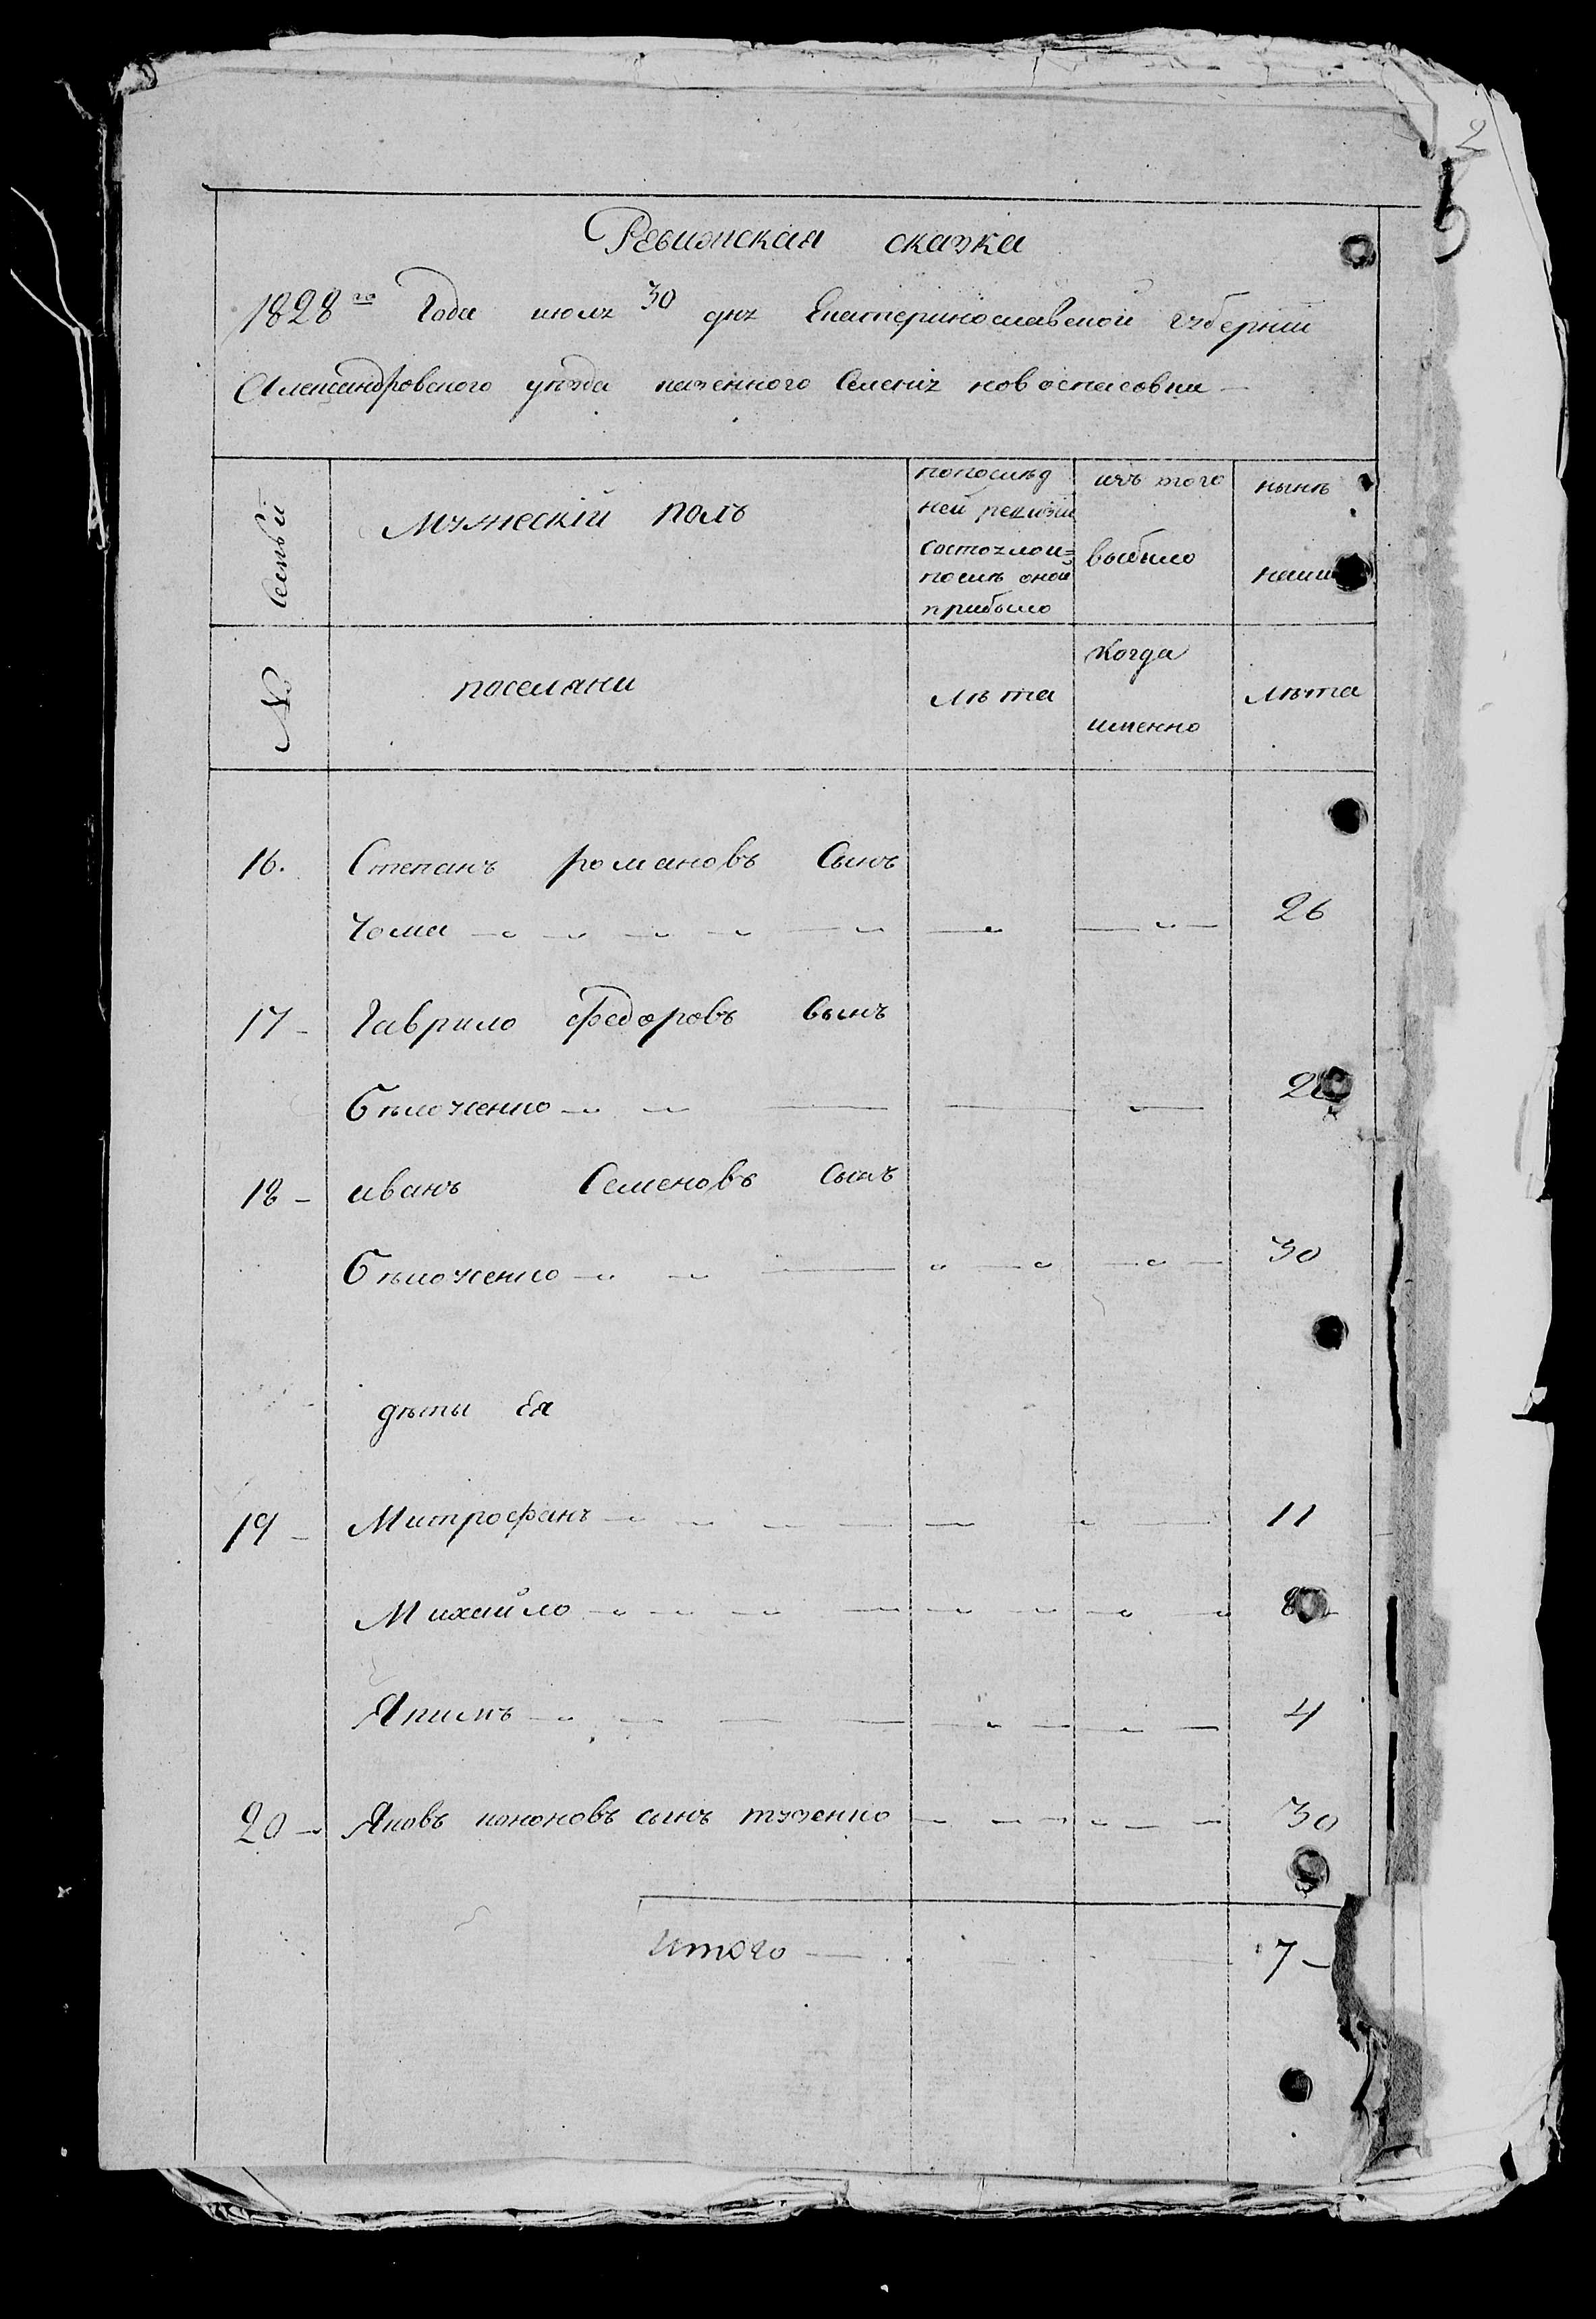 2
5
Ревижская сказка
1828го Года июля 30 дня Екатеринославской губерний
Александровского уѣзда казенного Селенія новоспасовки —
Семьи
Мужескій полъ
попослѣд
ней ревизіи
состояло и=
послѣ оной
прибыло
изъ того
выбыло
нынѣ
№
поселяни
лѣта
когда
именно
лѣта
16. Степанъ романовъ Сынъ
Чома 26
17 — Гаврило Федоровъ Сынъ
Бѣлоченко
18 — иванъ Семеновъ Сынъ
Бѣлоченко 30
дѣты Ея
19 — Митрофанъ 11
Михайло
Якимъ 4
20 — Яковъ кононовъ сынъ 30
итого — 7 —